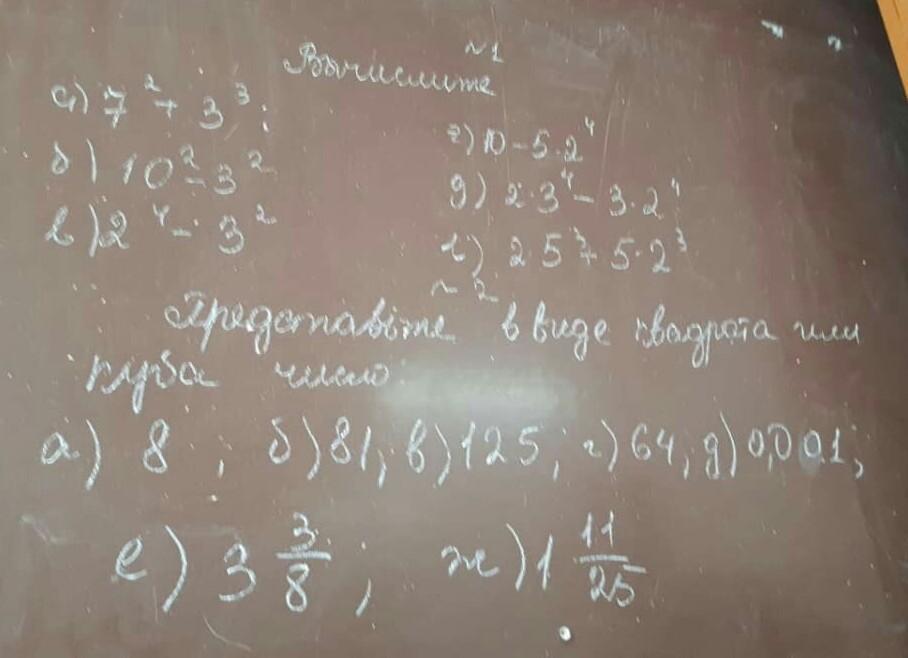 №1
Вычислите
а) 7² + 3³;
б) 10² - 3²
в) 2⁴ - 3²
г) 10 - 5·2⁴
д) 2·3⁴ - 3·2⁴
е) 2·5³ + 5·2³
№2
Представьте в виде квадрата или
куба число:
а) 8 ; б) 81; в) 125; г) 64; д) 0,001;
е) 3 3/8 ; ж) 1 11/25